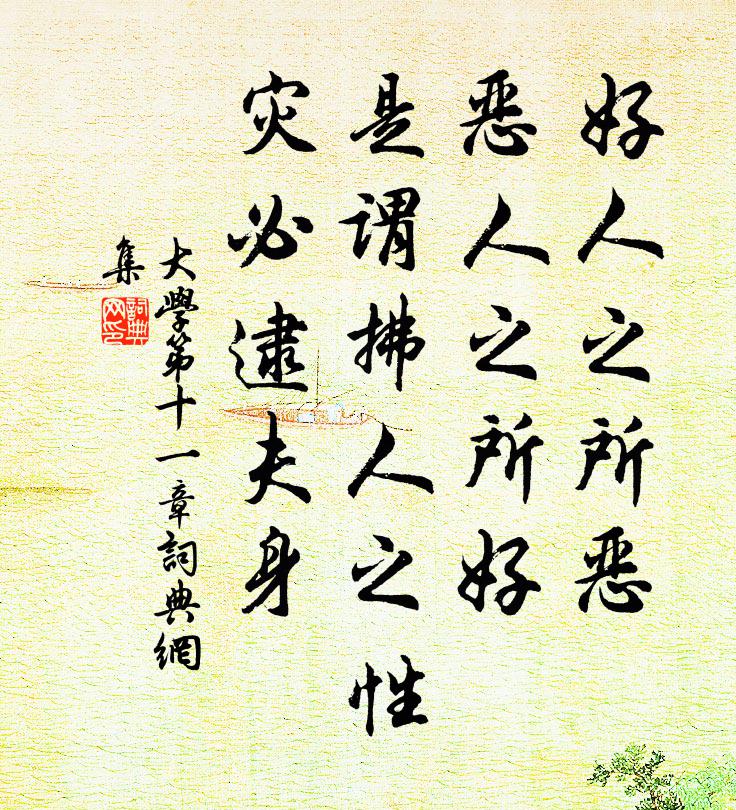 好人之所恶
恶人之所好
是谓拂人之性
灾必逮夫身
大學第十一章詞典網
集
詞典
网印